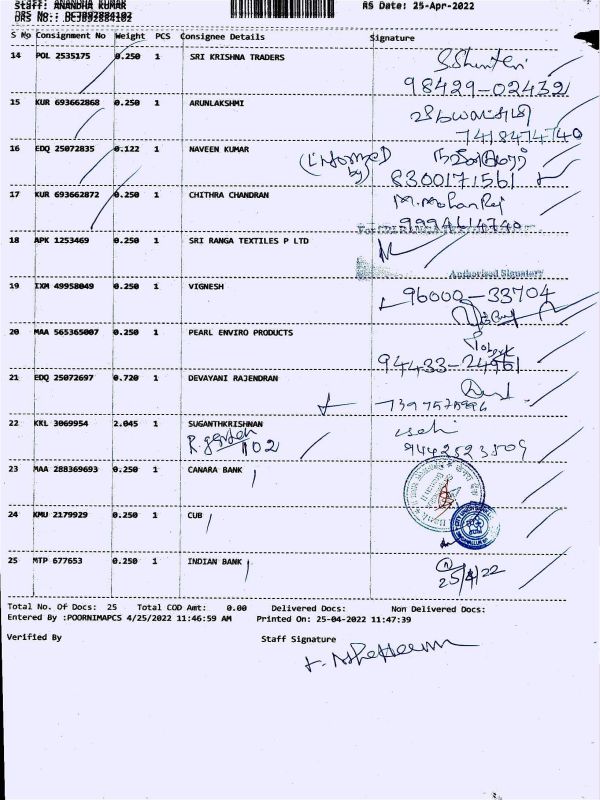 Staff: ANANDHA KUMAR RS Date: 25-Apr-2022
DRS No:: DCJ892884102
S No Consignment No Weight PCS Consignee Details Signature
14 POL 2535175 0.250 1 SRI KRISHNA TRADERS
98429-02432
15 KUR 693662868 0.250 1 ARUNLAKSHMI
7418474740
16 EDQ 25072835 0.122 1 NAVEEN KUMAR
8300171561
17 KUR 693662872 0.250 1 CHITHRA CHANDRAN M.Mohan Raj
18 APK 1253469 0.250 1 SRI RANGA TEXTILES P LTD
Authorised Signatory
19 IXM 49958049 0.250 1 VIGNESH 96000-33704
20 MAA 565365007 0.250 1 PEARL ENVIRO PRODUCTS
94433-24961
21 EDQ 25072697 0.720 1 DEVAYANI RAJENDRAN
22 KKL 3069954 2.045 1 SUGANTHKRISHNAN
23 MAA 288369693 0.250 1 CANARA BANK
24 KMU 2179929 0.250 1 CUB
25 MTP 677653 0.250 1 INDIAN BANK
25/4/22
Total No. Of Docs: 25 Total COD Amt: 0.00 Delivered Docs: Non Delivered Docs:
Entered By :POORNIMAPCS 4/25/2022 11:46:59 AM Printed On: 25-04-2022 11:47:39
Verified By Staff Signature